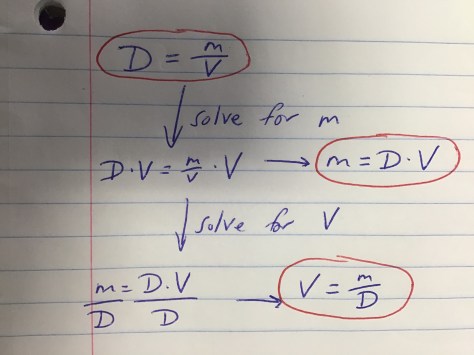 D = m/V
solve for m
D·V = m/V · V → m = D·V
solve for V
m/D = D·V/D → V = m/D